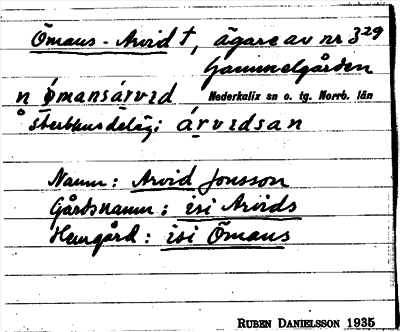 Ömans - Arvid †, ägare av nr 329
Gammelgården
n ömansárvıd Nederkalix sn o. tg. Norrb. län
Sterbhusdeläg: árvıdsan
Namn: Arvid Jonsson
Gårdsnamn: isi Arvids
Hemgård: isi Ömans
RUBEN DANIELSSON 1935